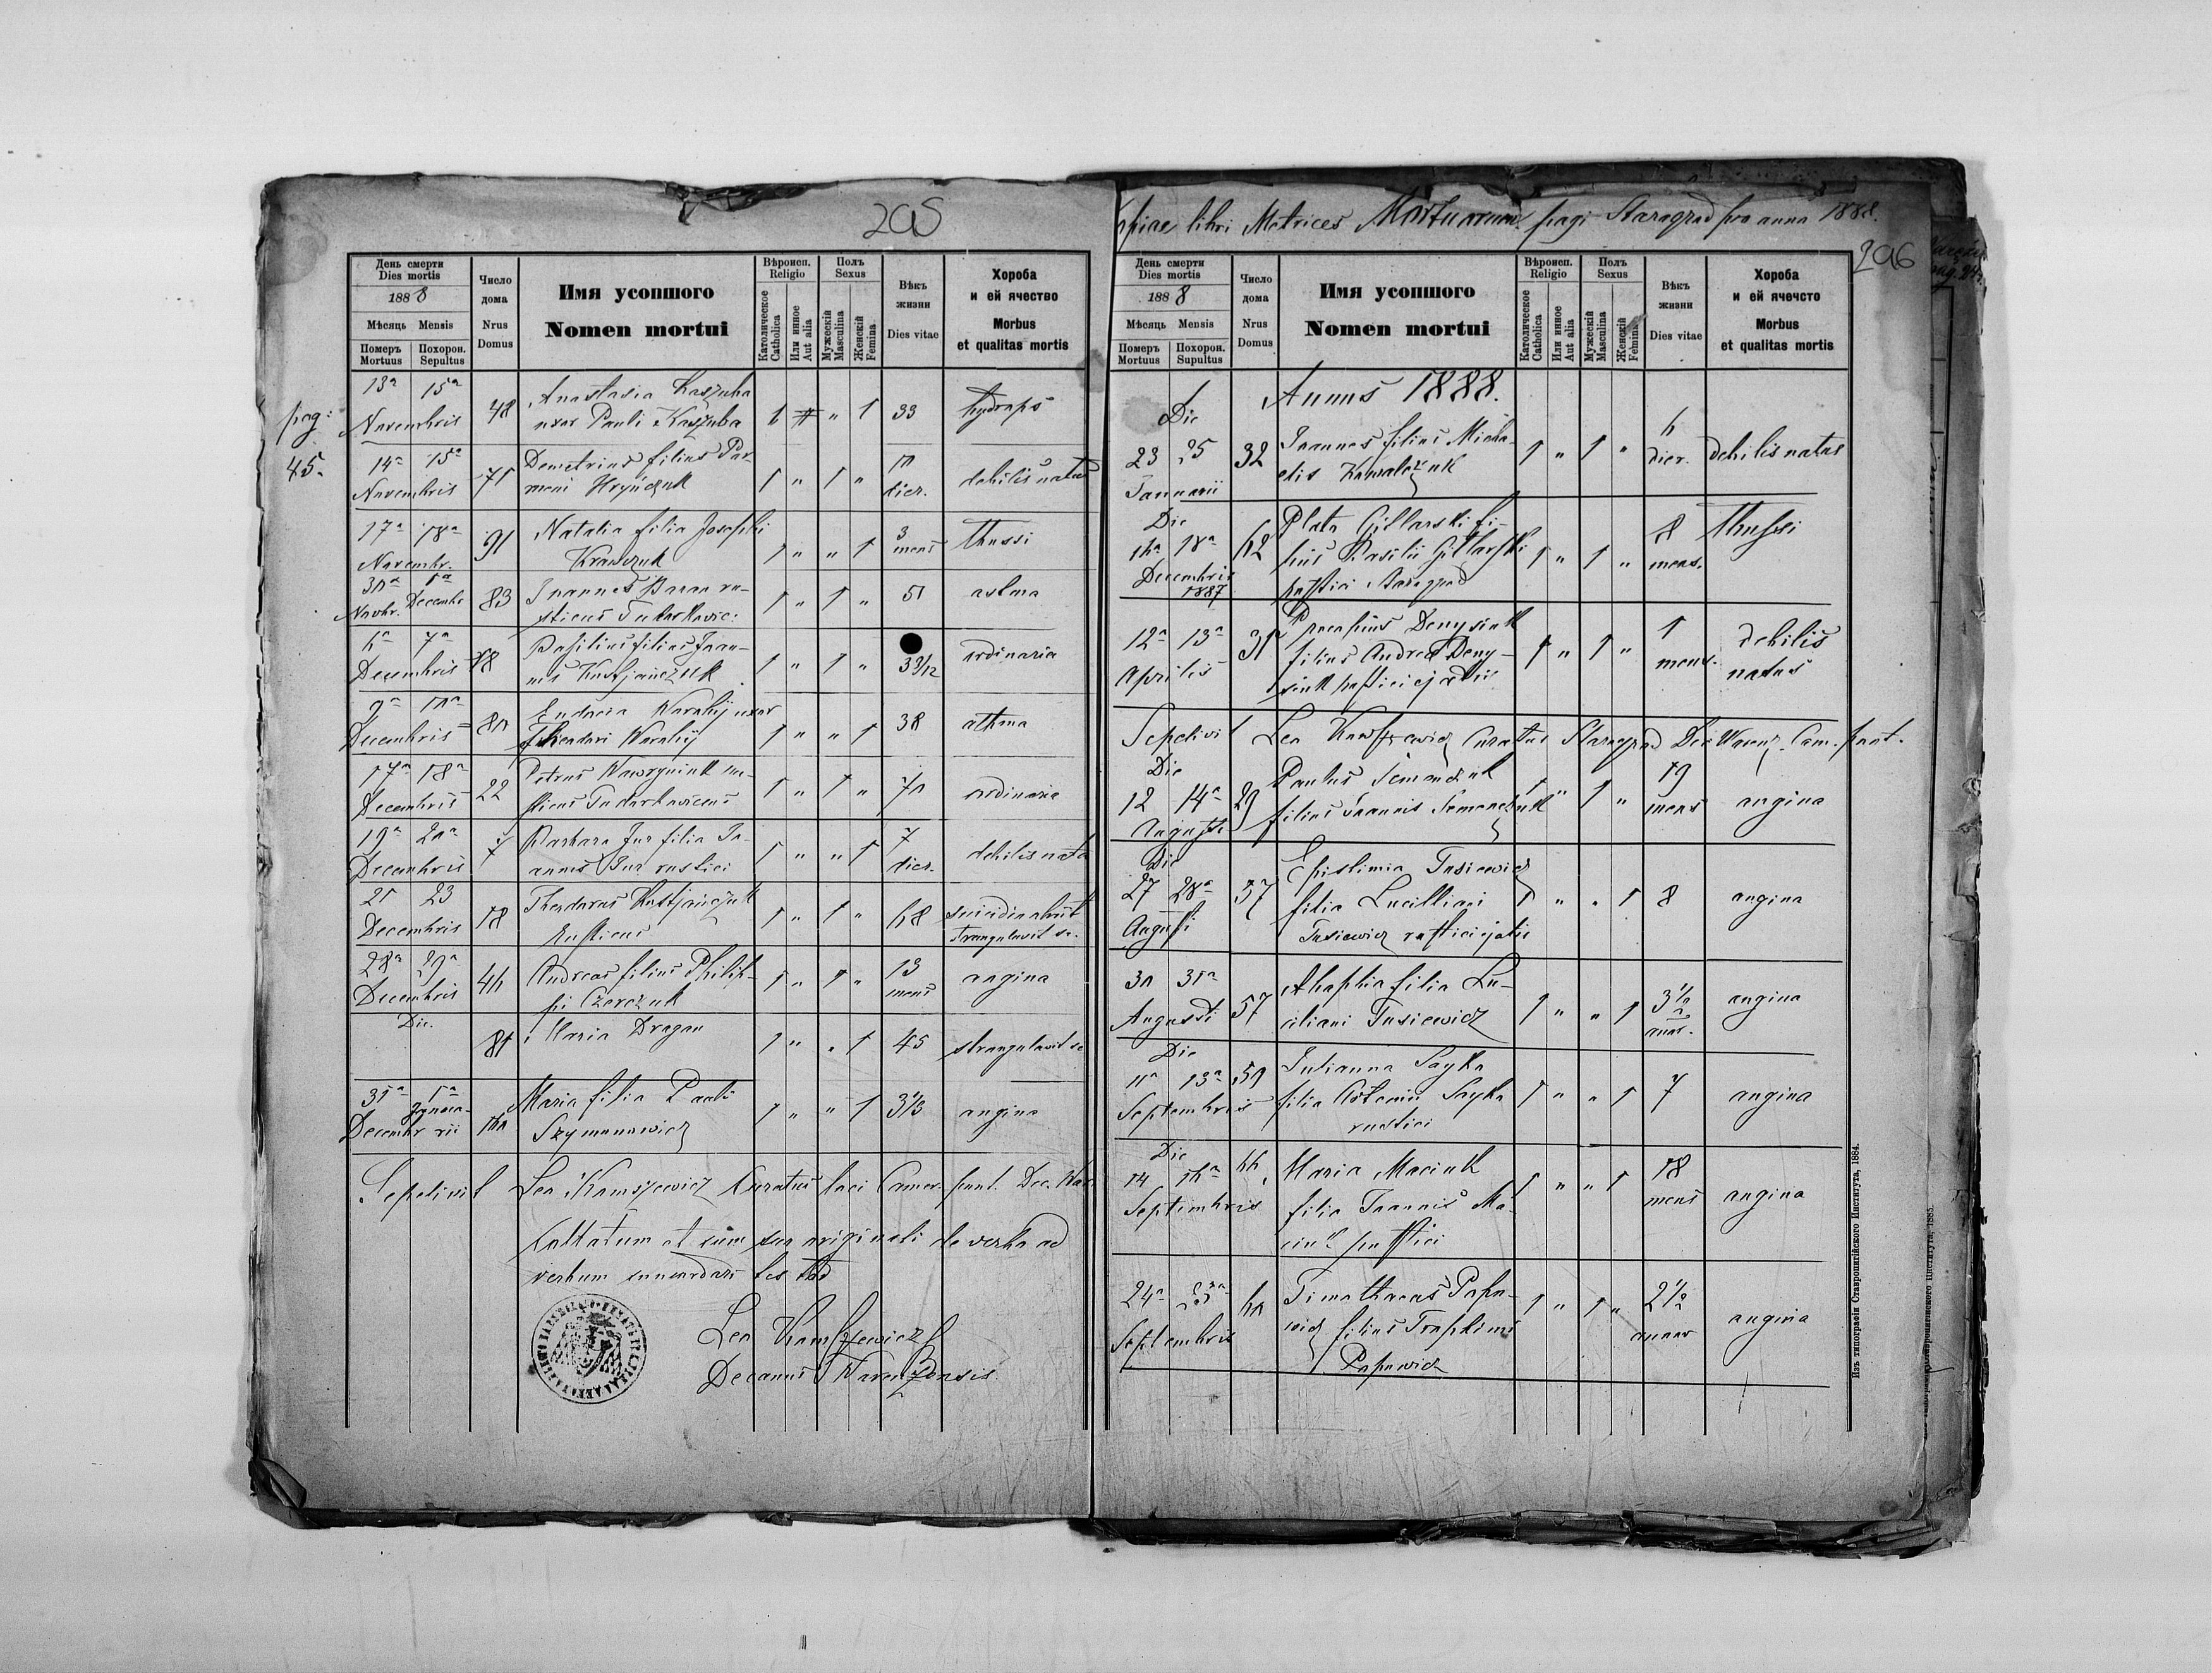 205
День смерти
Dies mortis
1888
Мѣсяць Mensis
Померъ Mortuus
Похорон. Sepultus
Число дома
Nrus Domus
Имя усопшого
Nomen mortui
Вѣроисп.
Religio
Католическое Catholica
Или инное Aut alia
Полъ
Sexus
Мужескій Masculina
Женскій Femina
Вѣкъ жизни
Dies vitae
Хороба и ей ячество
Morbus et qualitas mortis
pag: 45.
13a 15a Novembris 48 Anastasia Kaszuba
uxor Pauli Kaszuba 1 " " 1 33 hydrops
14a 15a Novembris 71 Demetrius filius Par-
meni Hryńczuk 1 " 1 " dier. debilis natus
17a 18a Novembr. 91 Natalia filia Josephi
Krawczuk 1 " " 1 3 mens thussi
30a Novbr. 1a Decembr 83 Joannes Baran ru-
sticus 1 " 1 " 51 astma
6a 7a Decembris 18 Basilius filius Joan-
nis Kostjańczuk 1 " 1 " 3 3/12 ordinaria
9a 10a Decembris 80 Eudocia Worobij uxor
Theodori Worobij 1 " " 1 38 athma
17a 18a Decembris 22 Petrus Wawryniuk ru-
sticus 1 " 1 " 70 ordinaria
19a 20a Decembris 7 Barbara Jur filia Jo-
annis Jur rustici 1 " " 1 7 dier. debilis nata
21 23 Decembris 18 Theodorus Kostjańczuk
rusticus 1 " 1 " 68 suicidio obiit
strangulavit se.
28a 29a Decembris 46 Andreas filius Philip-
pi Czerczuk 1 " 1 " 13 mens angina
Dic. 81 Maria Dragan 1 " " 1 45 strangulavit se
31a Decembr 1a Januarii 160 Maria filia Pauli
Szymanowicz 1 " " 1 3 1/3 angina
Sepelivit Leo Kamszewicz Curatus loci Camer. pont. Dec. War
Collatum et cum suo originali de verbo ad
verbum concordare testor
Leo Kamszewicz
Decanus Warenzensis.
Copiae libri Metrices Mortuorum pagi Starogrod pro anno 1888.
206
День смерти
Dies mortis
1888
Мѣсяць Mensis
Померъ Mortuus
Похорон. Supultus
Число дома
Nrus Domus
Имя усопшого
Nomen mortui
Вѣроисп.
Religio
Католическое Catholica
Или инное Aut alia
Полъ
Sexus
Мужескій Masculina
Женскій Femina
Вѣкъ жизни
Dies vitae
Хороба и ей ячечсто
Morbus et qualitas mortis
Annus 1888.
Die 23 25 Januarii 32 Joannes filius Micha-
elis Kowalczuk 1 " 1 " 6 dier. debilis natus
Die 16a 18a Decembris 1887 62 Plato Gillarski fi-
lius Basilii Gillarski
rustici Starogrod 1 " 1 " 8 mens. thussi
12a 13a Aprilis 31 Procopius Denysiuk
filius Andreae Deny-
siuk rustici ejatis 1 " 1 " 1 mens. debilis natus
Sepelivit Leo Kamszewicz Curatus Starogrod Dec. Warenz. Cam. pont.
Die 12 14a Augusti 29 Paulus Semenczuk
filius Joannis Semenczuk 1 " 1 " 19 mens angina
Die 27 28a Augusti 57 Epistimia Tusiewicz
filia Lucilliani
Tusiewicz rustici ejatis 1 " " 1 8 angina
30 31a Augusti 57 Ahaphia filia Lu-
ciliani Tusiewicz 1 " " 1 3 1/2 annr. angina
Die 11a 13a Septembris 50 Julianna Sayka
filia Artemii Sayka
rustici 1 " " 1 7 angina
Die 14 16a Septembris 66 Maria Maciuk
filia Joannis Ma-
ciuk rustici 1 " " 1 18 mens angina
24a 25a Septembris 60 Timotheus Popo-
wicz filius Trophimi
Popowicz 1 " 1 " 2 1/2 annor angina
Изъ типографіи Ставропигійского Института, 1884.
Института, 1885.